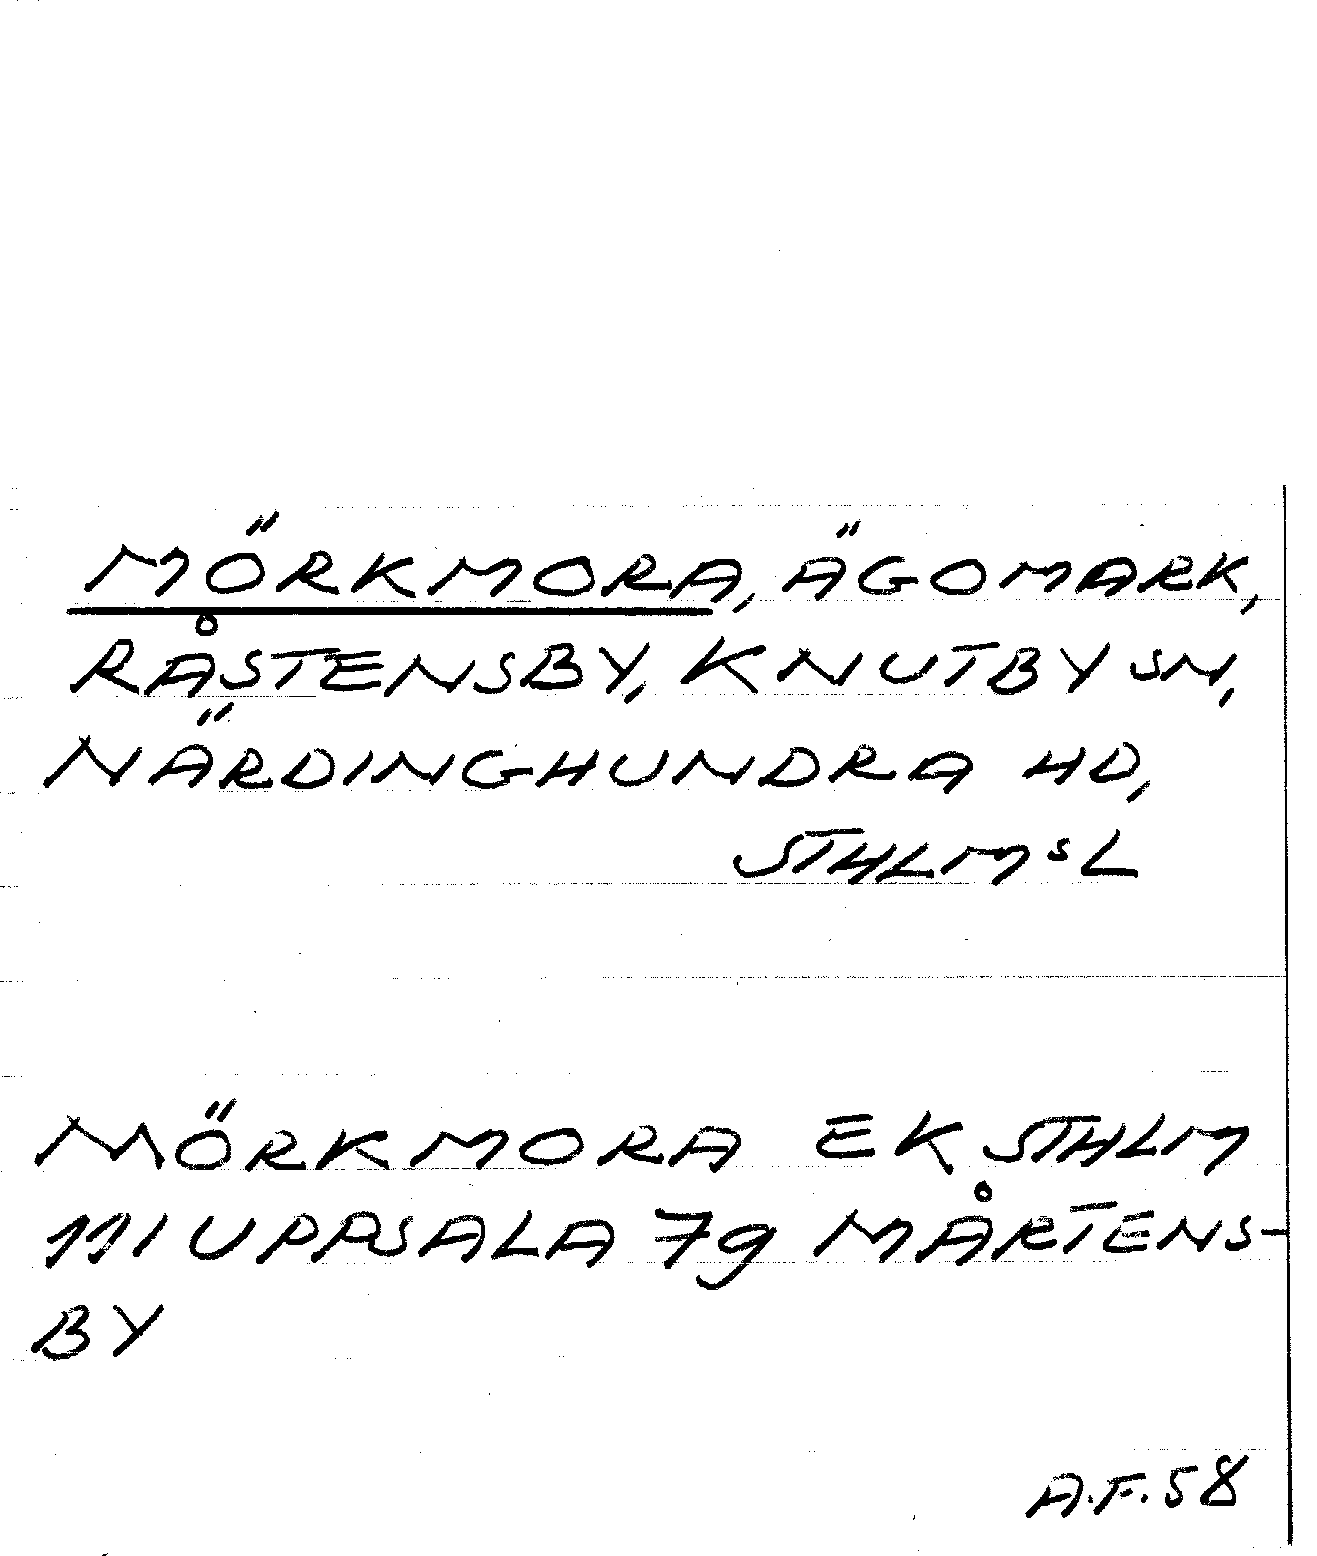 MÖRKMORA, ÄGOMARK,
RÅSTENSBY, KNUTBY SN,
NÄRDINGHUNDRA HD,
STHLMSL
MÖRKMORA EK STHLM
111 UPPSALA 79 MÅRTENS-
BY
A.F. 58